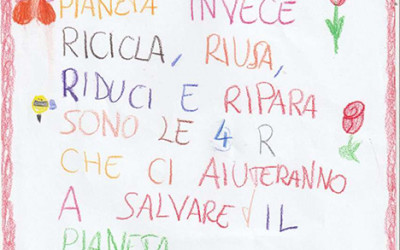 PIANETA INVECE
RICICLA, RIUSA,
RIDUCI E RIPARA
SONO LE 4 R
CHE CI AIUTERANNO
A SALVARE IL
PIANETA